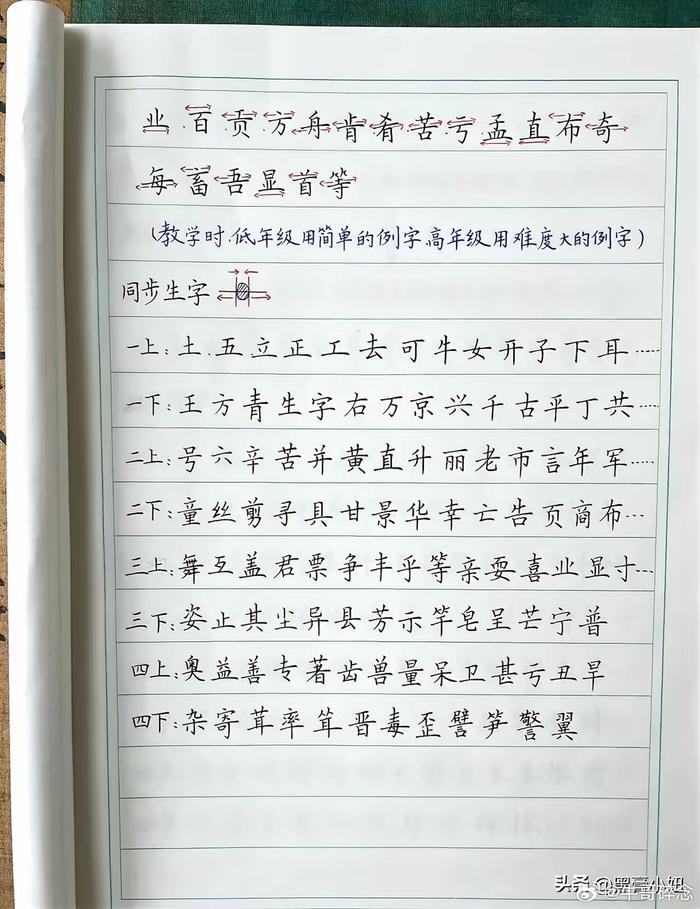 业百贡方舟肯肴苦亏孟直布奇
每畜吾显首等
(教学时.低年级用简单的例字.高年级用难度大的例字)
同步生字
一上:土.五立正工去可牛女开子下耳……
一下:王方青生字右万京兴千古平丁共……
二上:号六辛苦并黄直升丽老市言年军……
二下:童丝剪寻具甘景华幸亡告页商布…
三上:舞互盖君票争丰乎等亲耍喜业显寸……
三下:姿止其尘异县芳示竿皂呈芒宁普
四上:奥益善专著齿兽量呆卫甚亏丑旱
四下:杂寄茸率耸晋毒歪譬笋警翼
头条@墨言小妞
@牛哥碎念